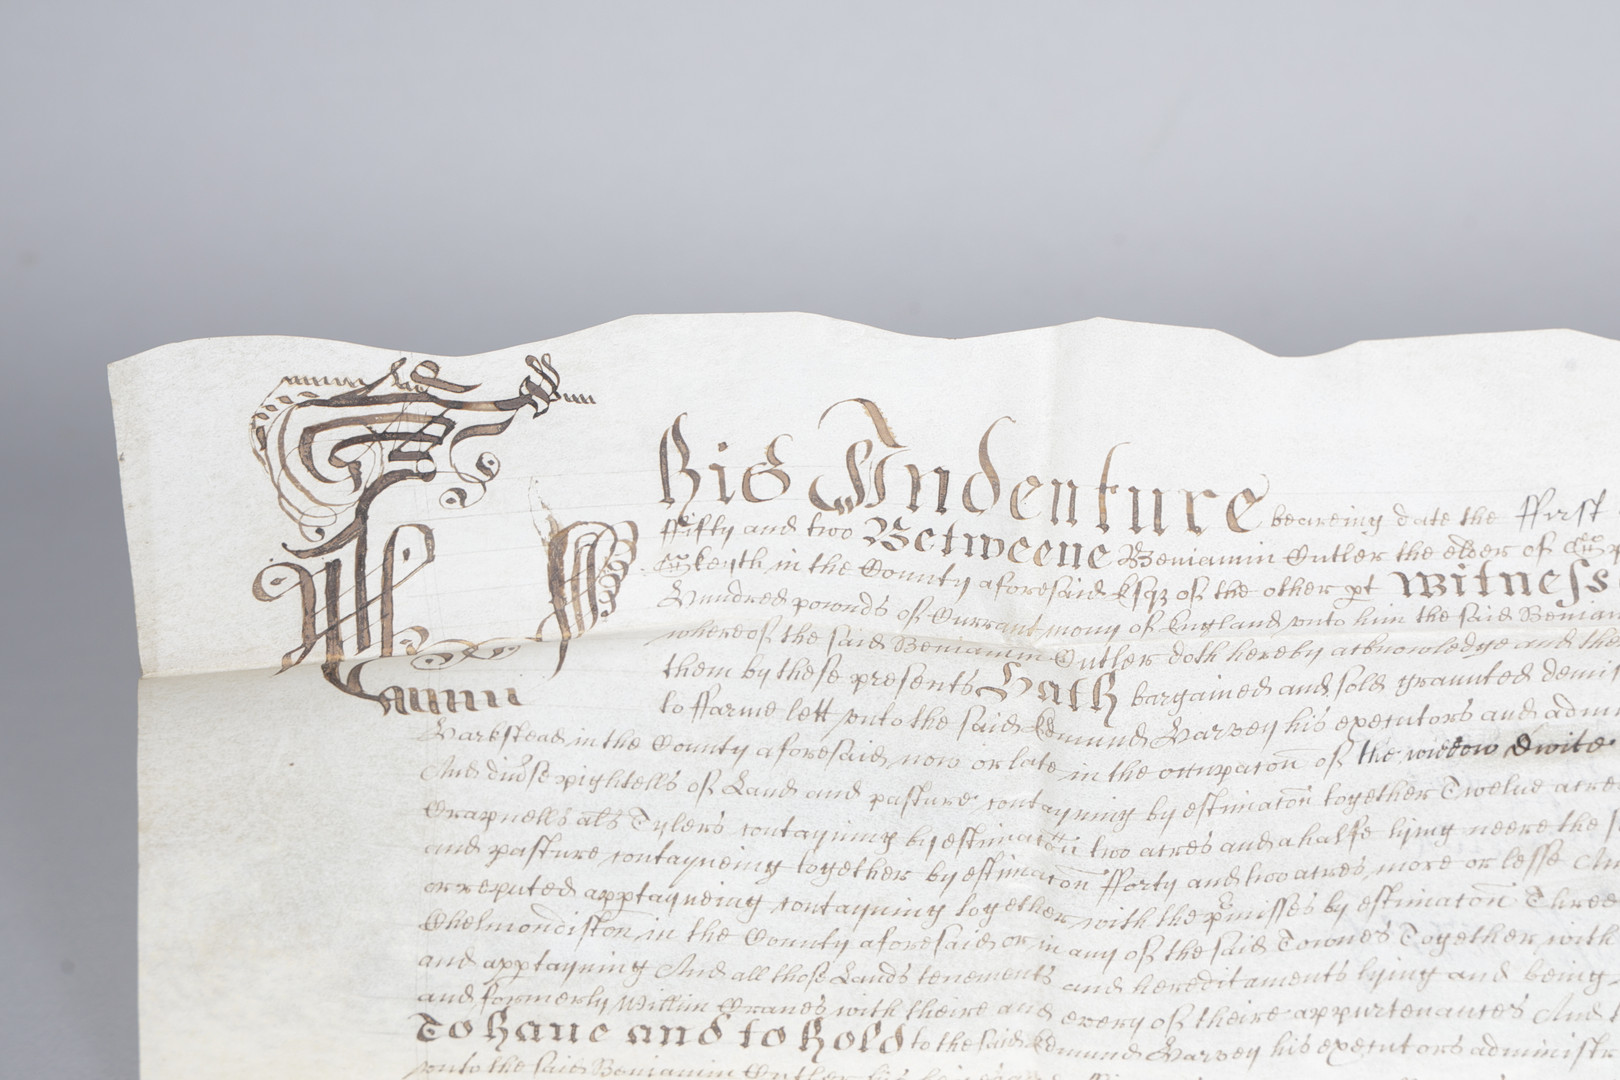 This Indenture beareing date the ffirst
ffifty and two Betweene Beniamin Cutler the elder of
in the County aforesaid Esq of the other pt Witness
Hundred pownds of Currant mony of England vnto him the said Beniam
whereof the said Beniamin Cutler doth hereby acknowledge and the
them by these presents Hath bargained and sold graunted demis
to ffarme lett vnto the said Edmund Harvey his executors and admin
Harkstead in the County aforesaid now or late in the occupacon of the widdow
And diuse pightells of Land and pasture contayning by estimacon together Twelue acre
Crapnells als Tylers contayning by estimacon two acres and a halfe lying neere the
and pasture contayneing together by estimacon fforty and two acres more or lesse An
or reputed apptayneing contayning together with the pmisses by estimacon Three
Chelmondiston in the County aforesaid or in any of the said Townes Together with
and apptayning And all those Lands tenements and hereditaments lying and being
and formerly Willm Cranes with theire and every of theire appurtenances And
To haue and to hold to the said Edmund Harvey his executors administr
vnto the said Beniamin Cutler his